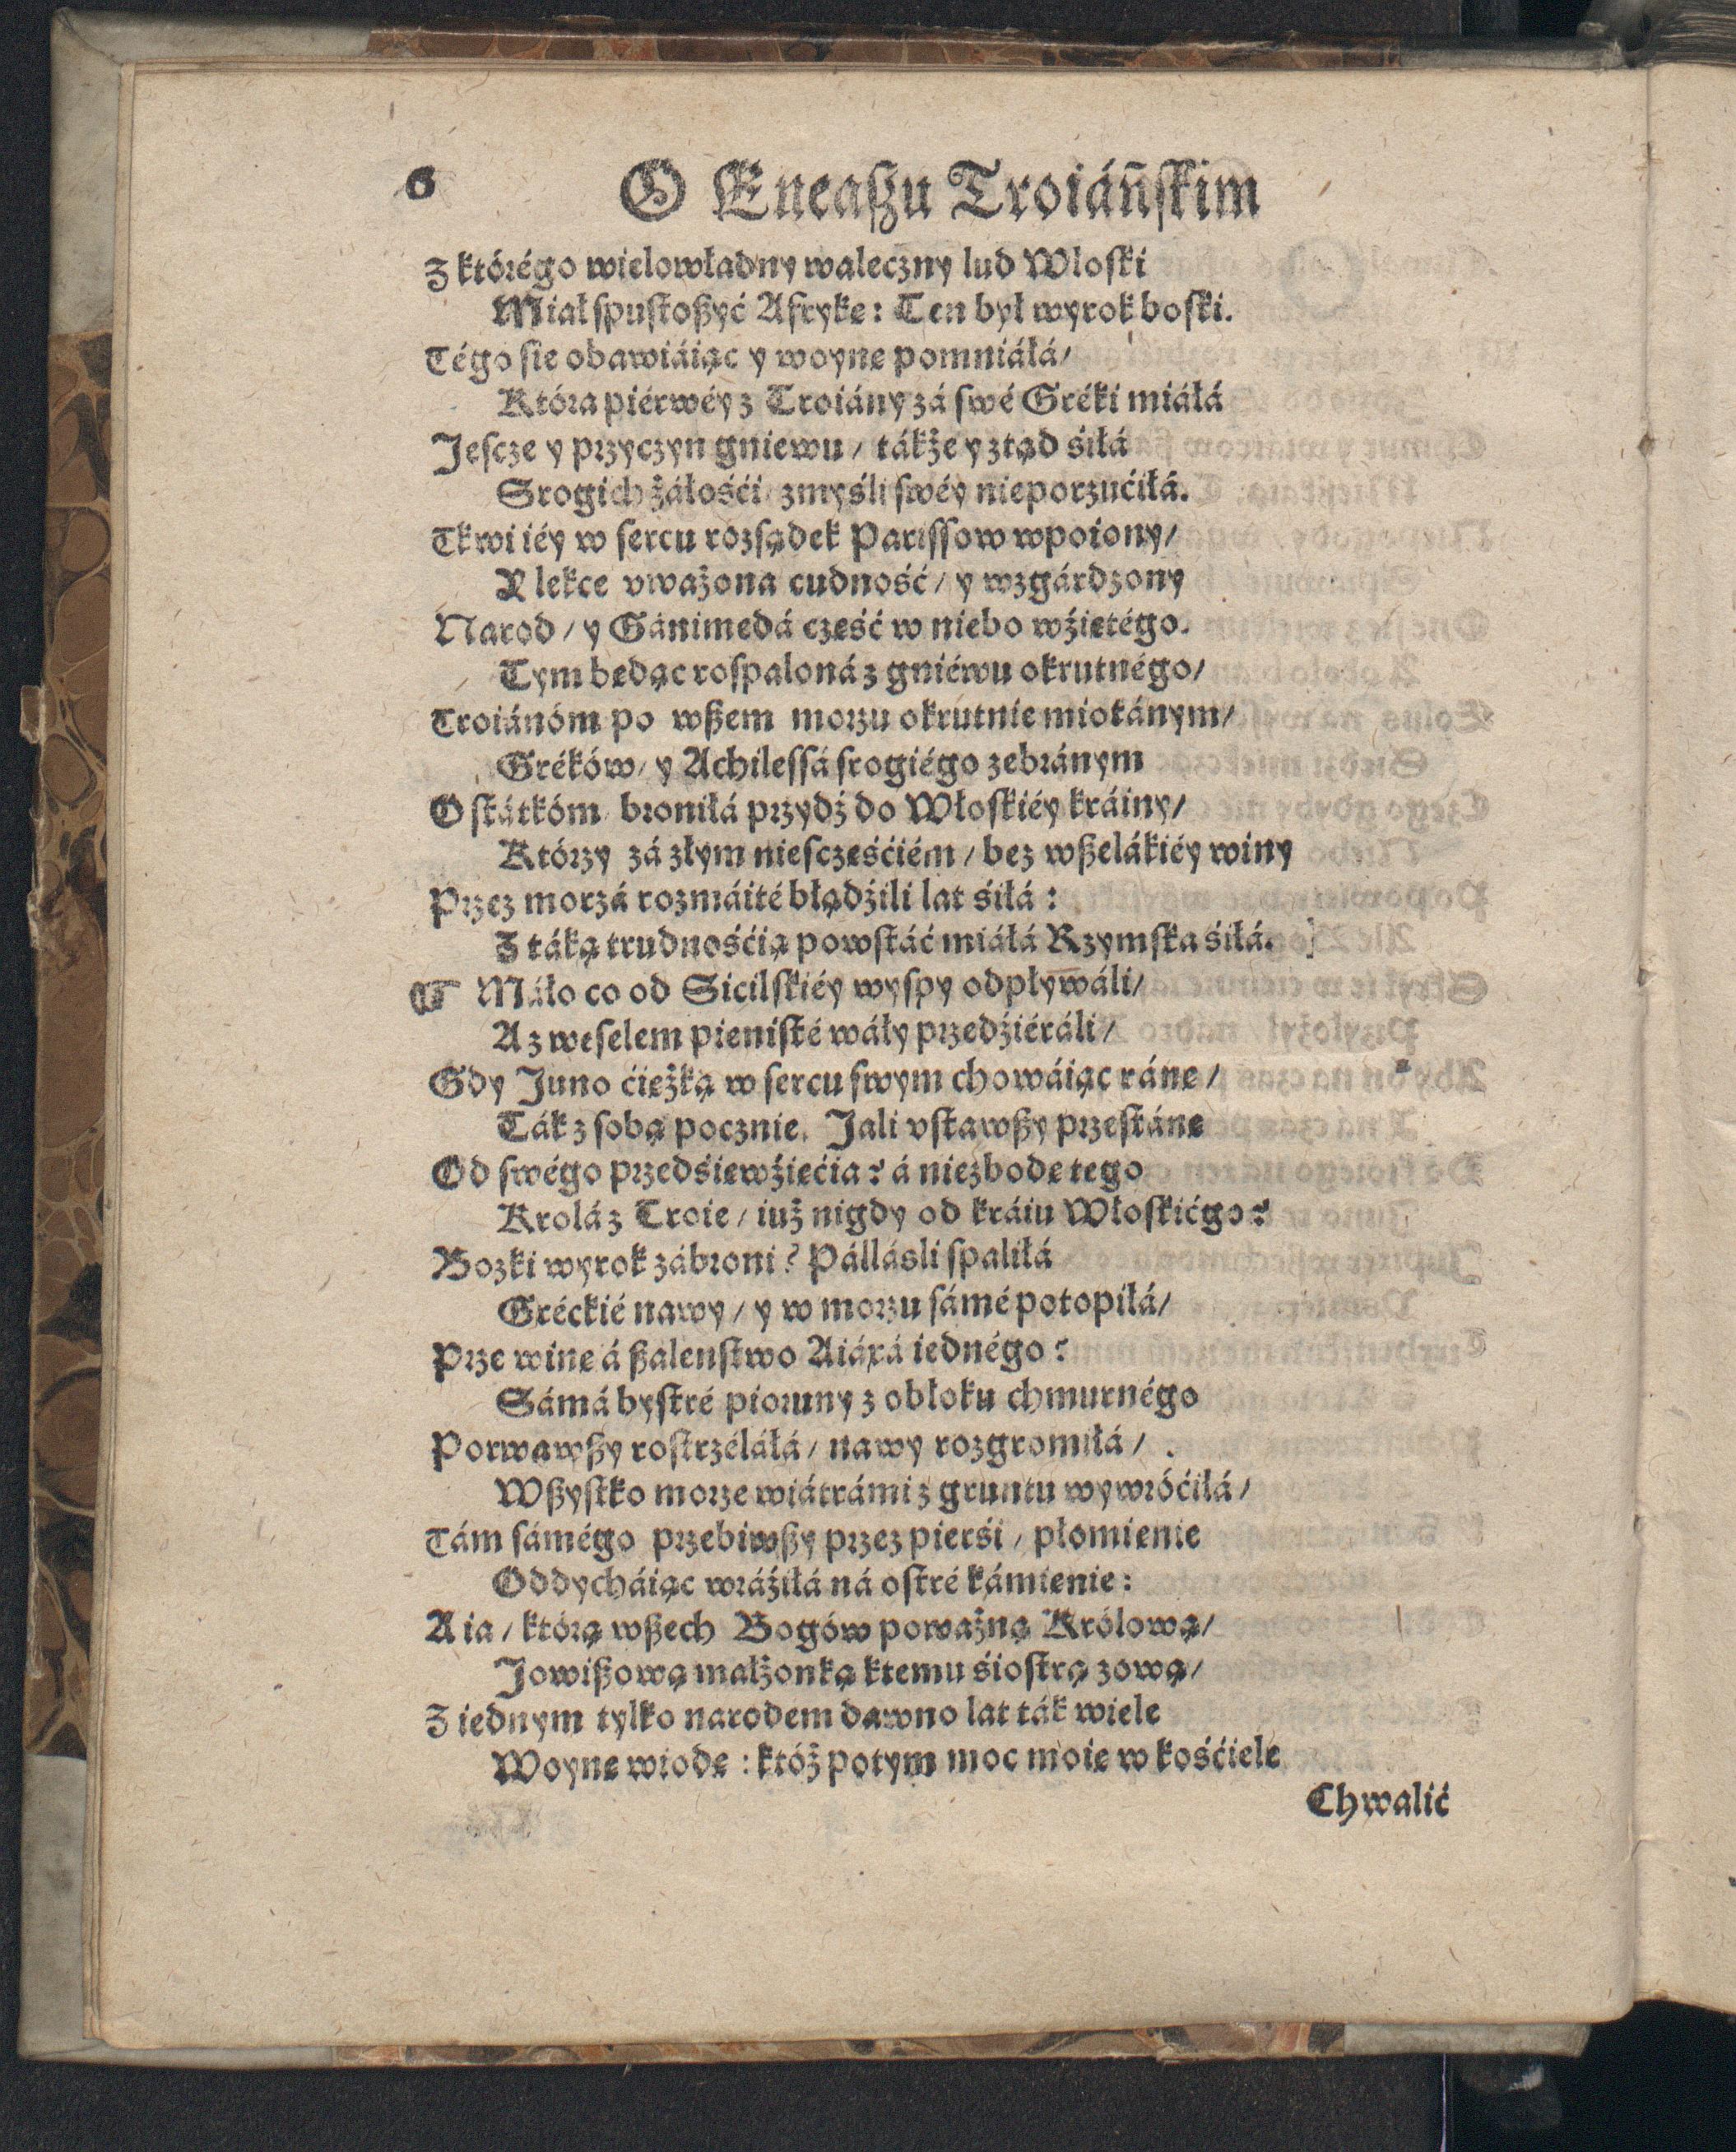 6 O Eneaszu Troiáńskim
Z którégo wielowładny waleczny lud Wloski
Miał spustoszyć Afrykę: Ten był wyrok boski.
Tégo sie obawiáiąc y woynę pomniáłá/
Która piérwéy z Troiány zá swé Gréki miáłá
Jescze y przyczyn gniewu/ tákże y ztąd śiłá
Srogich żáłośći/ z myśli swéy nieporzućiłá.
Tkwi iéy w sercu rozsądek Parissow wpoiony/
Y lekce vważona cudność/ y wzgárdzony
Narod/ y Gánimedá cześć w niebo wźiętégo.
Tym będąc rospaloná z gniéwu okrutnégo/
Troiánóm po wszem morzu okrutnie miotánym/
Gréków/ y Achilessá srogiégo zebránym
Ostátkóm broniłá przydź do Włoskiéy kráiny/
Którzy zá złym niesczęśćiém/ bez wszelákiéy winy
Przez morzá rozmáité błądźili lat śiłá:
Z táką trudnośćią powstáć miáłá Rzymska śiłá.]
Máło co od Sicilskiéy wyspy odpływáli/
A z weselem pienisté wáły przedźiéráli/
Gdy Juno ćięzką w sercu swym chowáiąc ránę/
Ták z sobą pocznie. Jali vstawszy przestánę
Od swégo przedśięwźięćia? á niezbodę tego
Krolá z Troie/ iuż nigdy od kráiu Włoskiégo?
Bozki wyrok zábroni? Pállásli spaliłá
Gréckié nawy/ y w morzu sámé potopiłá/
Prze winę á szalenstwo Aiáxá iednégo?
Sámá bystré pioruny z obłoku chmurnégo
Porwawszy rostrzéláłá/ nawy rozgromiłá/
Wszystko morze wiátrámi z gruntu wywróćiłá/
Tám sámégo przebiwszy przez pierśi/ płomienie
Oddycháiąc wráźiłá ná ostré kámienie:
A ia/ którą wszech Bogów poważną Królową/
Jowiszową małżonką k temu śiostrą zową/
Z iednym tylko narodem dawno lat ták wiele
Woynę wiodę: któż potym moc moię w kośćiele
Chwalić